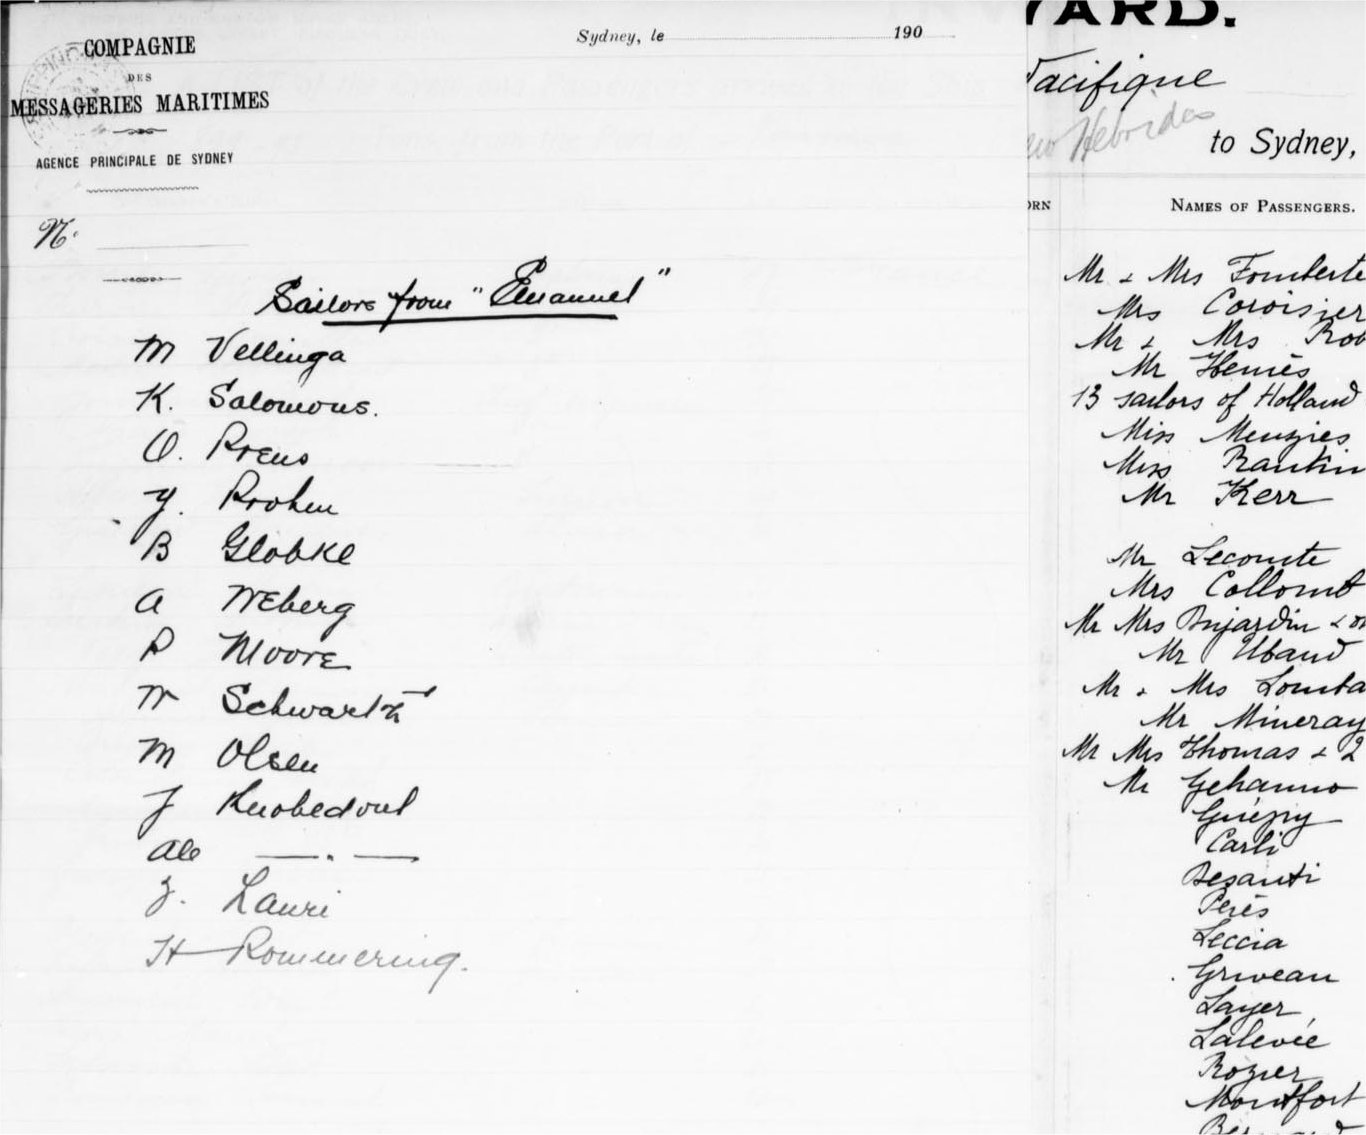 COMPAGNIE
DES
MESSAGERIES MARITIMES
AGENCE PRINCIPALE DE SYDNEY
Sydney, le 190
N.
Sailors from "Emanuel"
M Vellinga
K. Salomons.
O. Roens
Y. Roohen
B Globke
A Weberg
P Moore
W Schwartz
M Olsen
J Knobedout
Ale — . —
J. Lauri
H Rommering.
YARD.
Pacifique
New Hebrides
to Sydney,
ORN
NAMES OF PASSENGERS.
Mr & Mrs Fomberte
Mrs Coroisier
Mr & Mrs Rob
Mr
13 sailors of Holland
Miss Menzies
Miss Rankin
Mr Kerr
Mr Lecomte
Mrs Collomb
Mr Mrs Dujardin & on
Mr Ubaud
Mr & Mrs Lomba
Mr Mineray
Mr Mrs Thomas & 2
Mr Gehanno
Guépy
Carli
Desanti
Perès
Leccia
Griveau
Layer
Lalevée
Rozier
Montfort